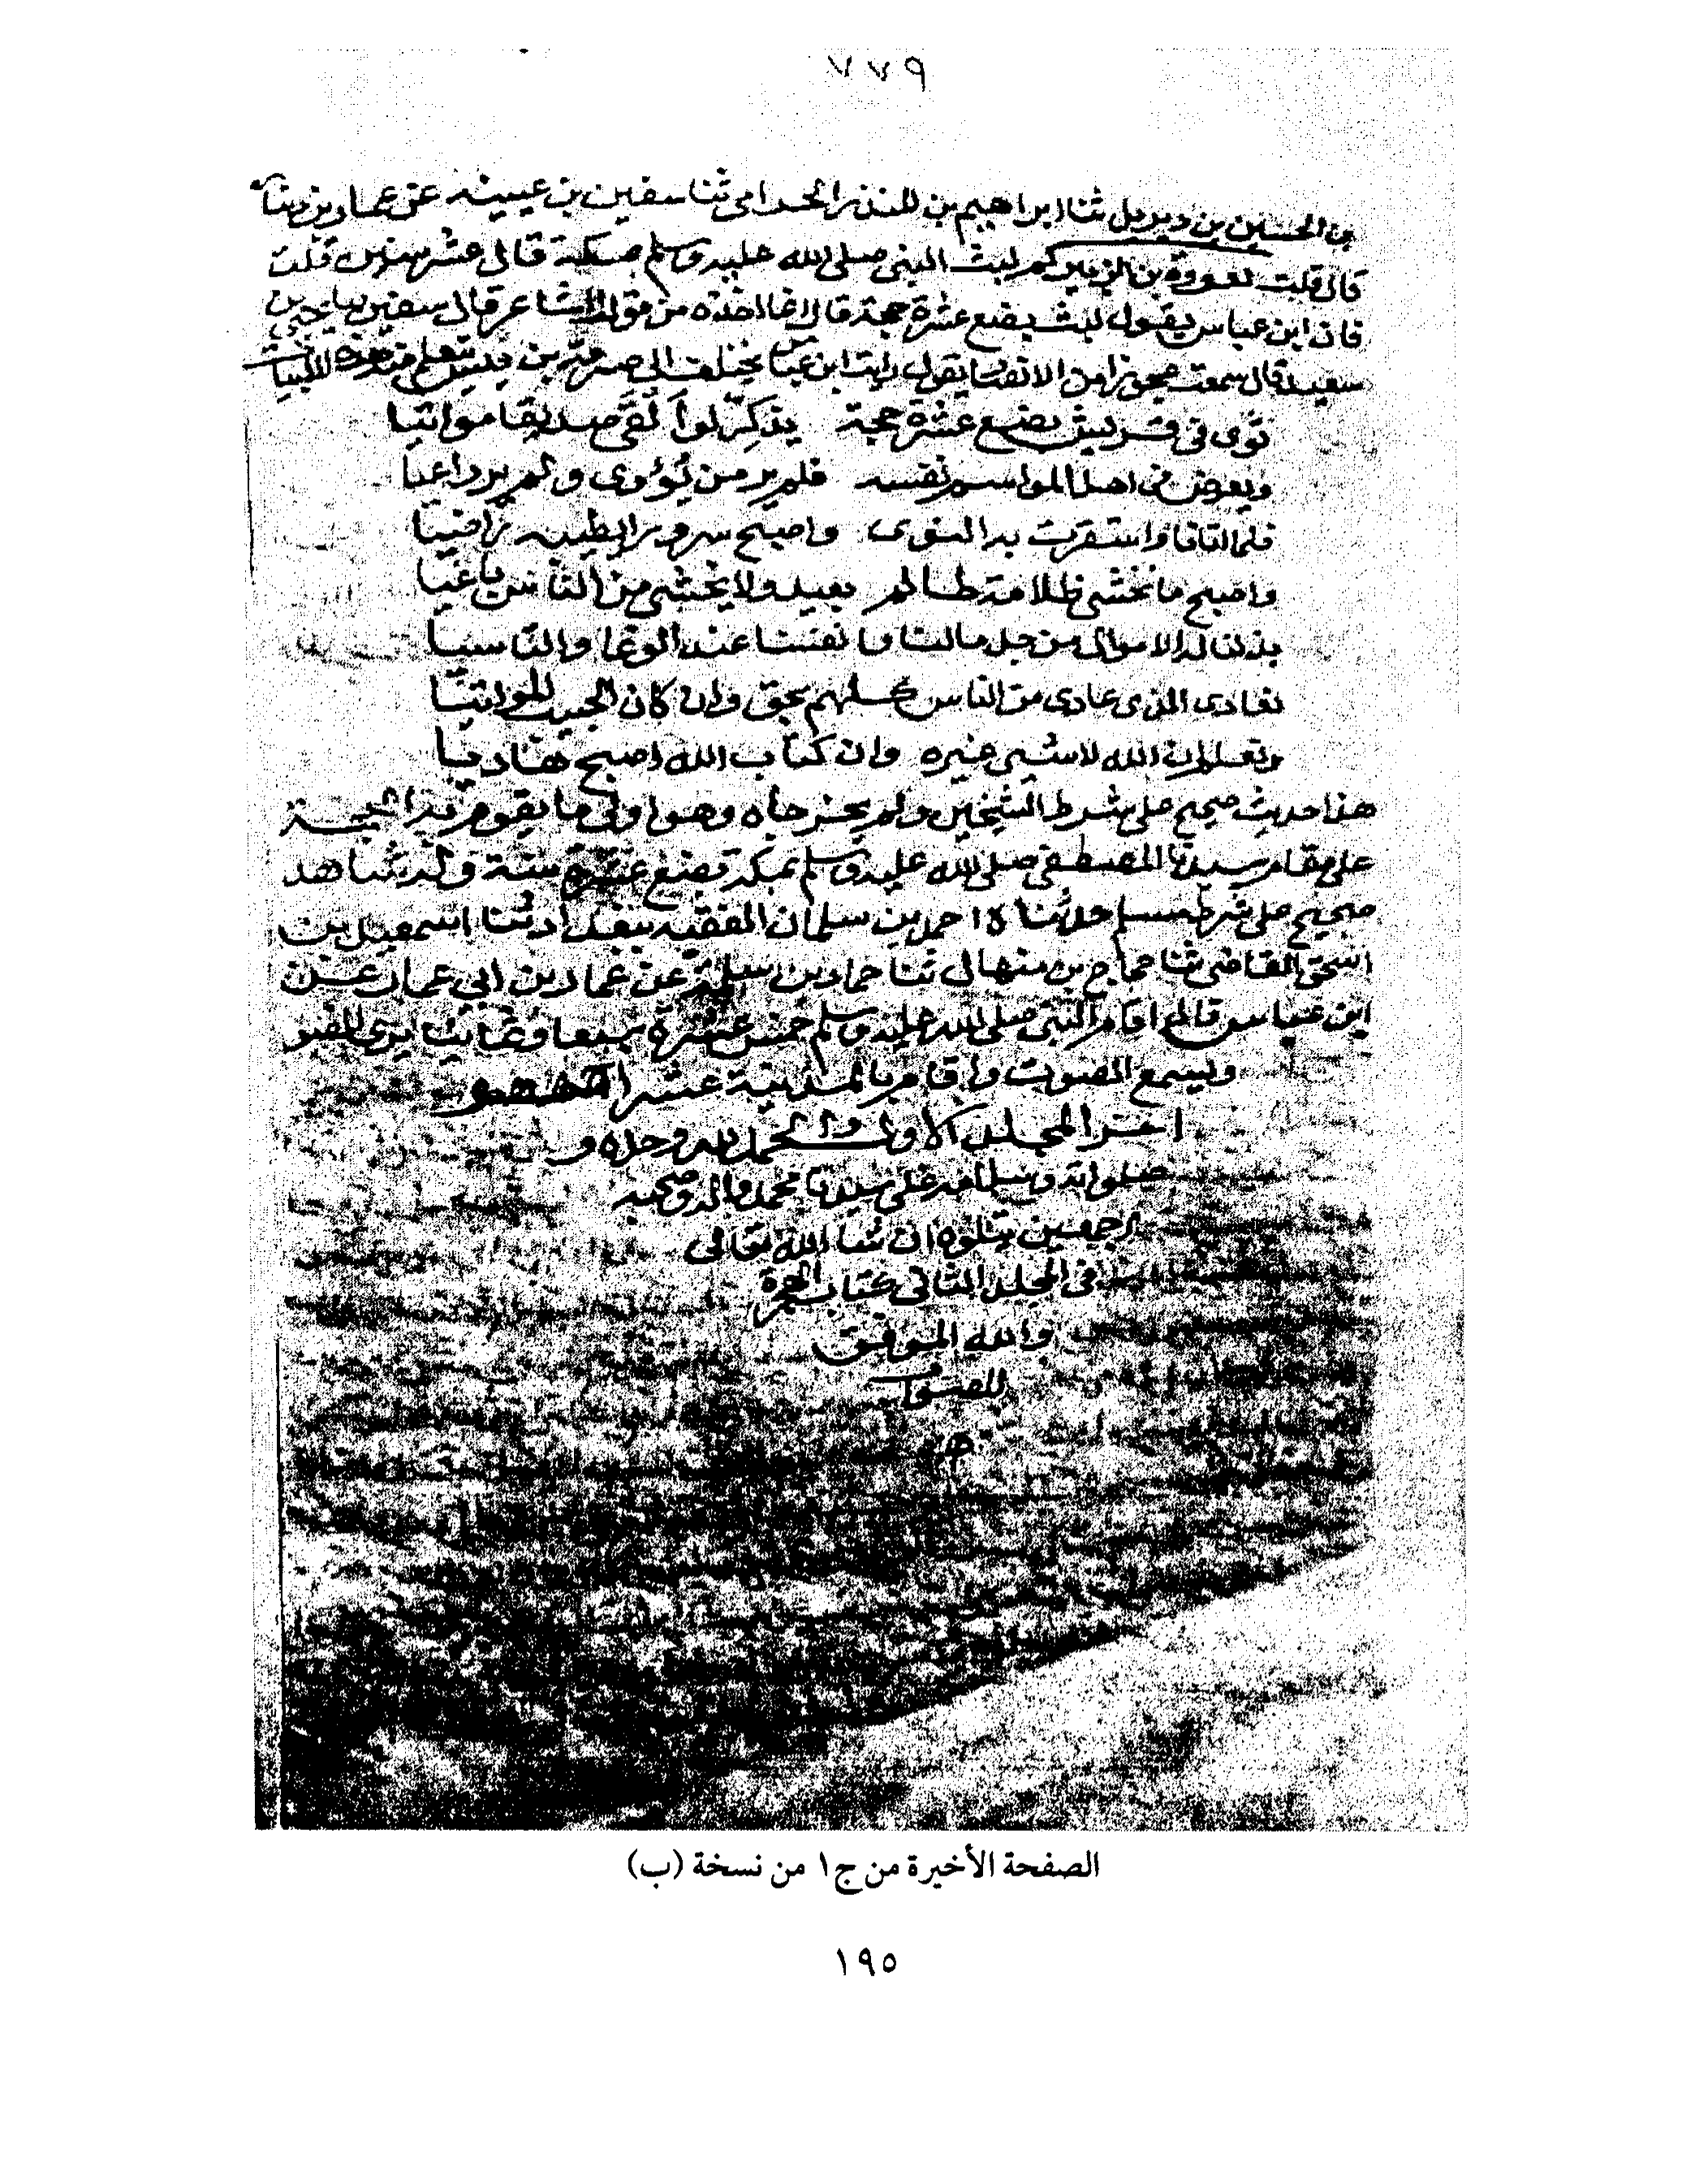 ٧٧٩
بن الحسين بن ديزيل ثنا ابراهيم بن المنذر الحزامى ثنا سفين بن عيينه عن عمار بن دينا
قال قلت لعروة بن الزبير كم لبث النبى صلى الله عليه وسلم بمكة قال عشر سنين قلت
فان ابن عباس يقول لبث بضع عشرة حجة قال انما اخذه من قول الشاعر قال سفين ثنا يحيى بن
سعيد قال سمعت عجوزا من الانصار تقول رايت ابن عباس يختلف الى صرمة بن قيس يتعلم منه هذه الابيات
ثوى فى قريش بضع عشرة حجة يذكر لو القى صديقا مواتيا
ويعرض فى اهل المواسم نفسه فلم ير من يؤوى ولم ير داعيا
فلما اتانا واستقرت به النوى واصبح سرورا بطيبه راضيا
واصبح ما نخشى ظلامة ظالم بعيد ولا يخشى من الناس باغيا
بذلنا له الاموال من جل مالنا وانفسنا عند الوغا والتاسيا
نعادى الذى عادى من الناس كلهم بحق وان كان الحبيب المواتيا
ونعلم ان الله لا شىء غيره وان كتاب الله اصبح هاديا
هذا حديث صحيح على شرط الشيخين ولم يخرجاه وهو اولى ما يقوم به الحجة
على مقام سيدنا المصطفى صلى الله عليه وسلم بمكة بضع عشرة سنة وله شاهد
صحيح على شرط مسلم حدثناه احمد بن سلمان الفقيه ببغداد ثنا اسمعيل بن
اسحق القاضى ثنا حجاج بن منهال ثنا حماد بن سلمة عن عمار بن ابي عمار عن
ابن عباس قال اقام النبى صلى الله عليه وسلم خمس عشرة سبعا وثمانيا يرى الضوء
ويسمع الصوت واقام بالمدينة عشرا
اخر المجلد الاول والحمد لله وحده و
صلواته وسلامه على سيدنا محمد واله وصحبه
اجمعين يتلوه ان شاء الله تعالى
فى المجلد الثانى كتاب الهجرة
والله الموفق
للصواب
الصفحة الأخيرة من ج١ من نسخة (ب)
١٩٥